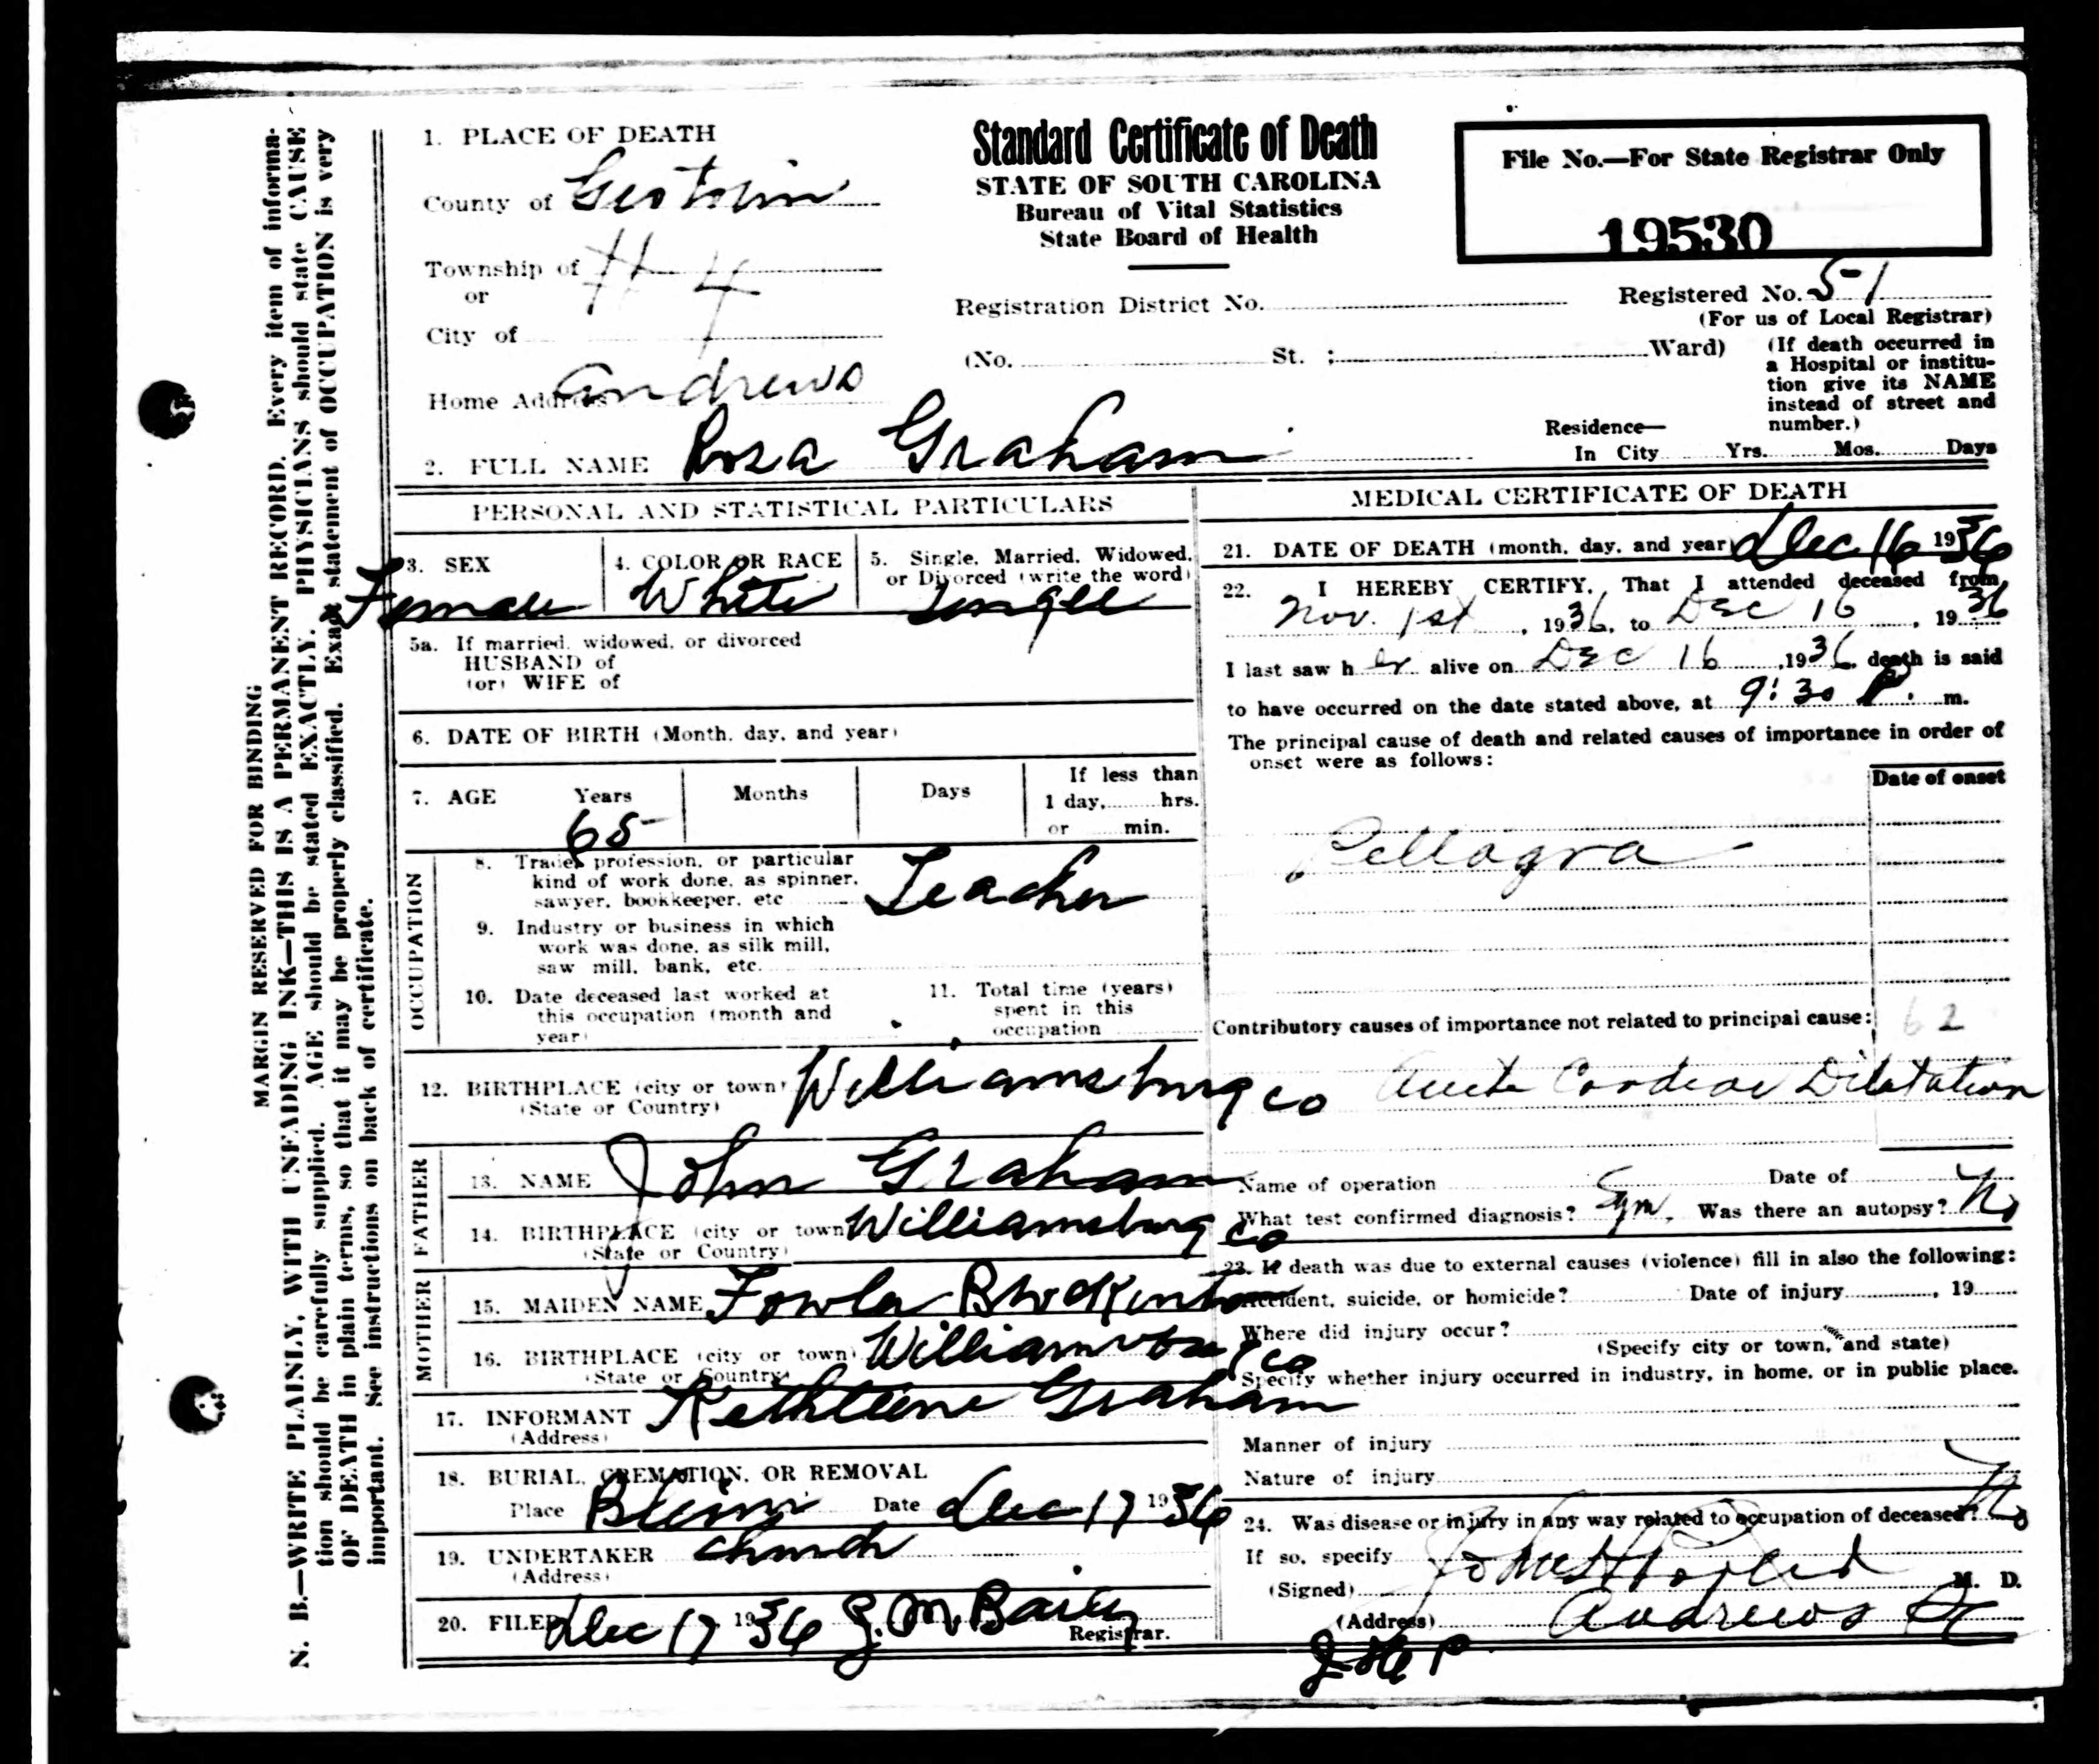 MARGIN RESERVED FOR BINDING
N. B.—WRITE PLAINLY, WITH UNFADING INK—THIS IS A PERMANENT RECORD. Every item of informa-
tion should be carefully supplied. AGE should be stated EXACTLY. PHYSICIANS should state CAUSE
OF DEATH in plain terms, so that it may be properly classified. Exact statement of OCCUPATION is very
important. See instructions on back of certificate.
Standard Certificate of Death
STATE OF SOUTH CAROLINA
Bureau of Vital Statistics
State Board of Health
File No.—For State Registrar Only
19530
1. PLACE OF DEATH
County of
Township of # 4
or
City of
Home Address Andrews
Registration District No.
Registered No. 51
(For us of Local Registrar)
(No. St. ; Ward)
(If death occurred in
a Hospital or institu-
tion give its NAME
instead of street and
number.)
2. FULL NAME Rosa Graham
Residence—
In City Yrs. Mos. Days
PERSONAL AND STATISTICAL PARTICULARS
3. SEX Female
4. COLOR OR RACE White
5. Single, Married, Widowed,
or Divorced (write the word)
Single
5a. If married, widowed, or divorced
HUSBAND of
(or) WIFE of
6. DATE OF BIRTH (Month, day, and year)
7. AGE Years 65 Months Days
If less than
1 day, hrs.
or min.
OCCUPATION
8. Trade, profession, or particular
kind of work done, as spinner,
sawyer, bookkeeper, etc Teacher
9. Industry or business in which
work was done, as silk mill,
saw mill, bank, etc.
10. Date deceased last worked at
this occupation (month and
year)
11. Total time (years)
spent in this
occupation
12. BIRTHPLACE (city or town) Williamsburg co
(State or Country)
FATHER
13. NAME John Graham
14. BIRTHPLACE (city or town) Williamsburg co
(State or Country)
MOTHER
15. MAIDEN NAME
16. BIRTHPLACE (city or town) Williamsburg co
(State or Country)
17. INFORMANT Graham
(Address)
18. BURIAL, CREMATION, OR REMOVAL
Place Date Dec 17 1936
19. UNDERTAKER church
(Address)
20. FILED Dec 17 1936 Registrar.
MEDICAL CERTIFICATE OF DEATH
21. DATE OF DEATH (month, day, and year) Dec 16 1936
22. I HEREBY CERTIFY, That I attended deceased from
Nov. 1st, 1936, to Dec 16, 1936
I last saw her alive on Dec 16, 1936, death is said
to have occurred on the date stated above, at 9:30 P. m.
The principal cause of death and related causes of importance in order of
onset were as follows:
Date of onset
Pellagra
Contributory causes of importance not related to principal cause: 62
Acute Cardiac Dilatation
Name of operation Date of
What test confirmed diagnosis? Sym. Was there an autopsy? No
23. If death was due to external causes (violence) fill in also the following:
Accident, suicide, or homicide? Date of injury , 19
Where did injury occur?
(Specify city or town, and state)
Specify whether injury occurred in industry, in home, or in public place.
Manner of injury
Nature of injury
24. Was disease or injury in any way related to occupation of deceased? No
If so, specify
(Signed) M. D.
(Address) Andrews SC